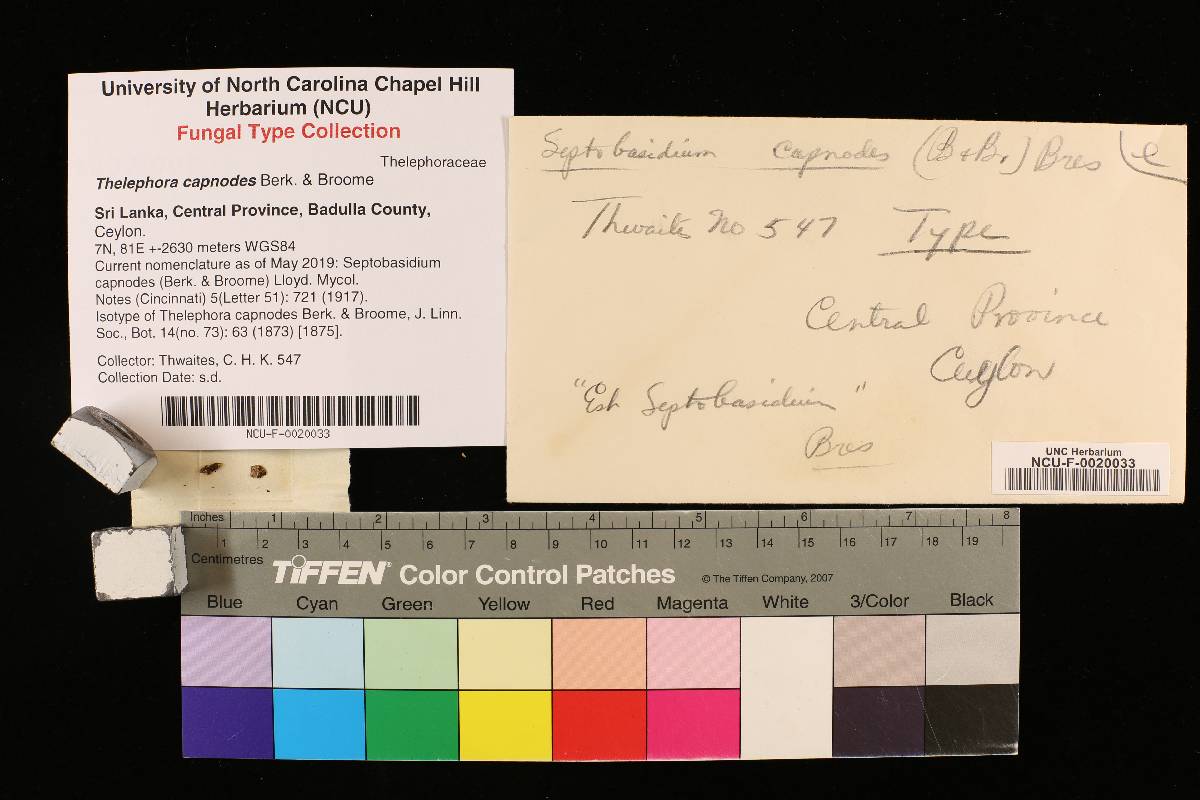 University of North Carolina Chapel Hill
Herbarium (NCU)
Fungal Type Collection
Thelephoraceae
Thelephora capnodes Berk. & Broome
Sri Lanka, Central Province, Badulla County,
Ceylon.
7N, 81E +-2630 meters WGS84
Current nomenclature as of May 2019: Septobasidium
capnodes (Berk. & Broome) Lloyd. Mycol.
Notes (Cincinnati) 5(Letter 51): 721 (1917).
Isotype of Thelephora capnodes Berk. & Broome, J. Linn.
Soc., Bot. 14(no. 73): 63 (1873) [1875].
Collector: Thwaites, C. H. K. 547
Collection Date: s.d.
NCU-F-0020033
Septobasidium capnodes (B & Br.) Bres e
Thwaites No 547 Type
Central Province
Ceylon
"Est Septobasidium"
Bres
UNC Herbarium
NCU-F-0020033
Inches 1 2 3 4 5 6 7 8
1 2 3 4 5 6 7 8 9 10 11 12 13 14 15 16 17 18 19
Centimetres
TIFFEN® Color Control Patches © The Tiffen Company, 2007
Blue Cyan Green Yellow Red Magenta White 3/Color Black